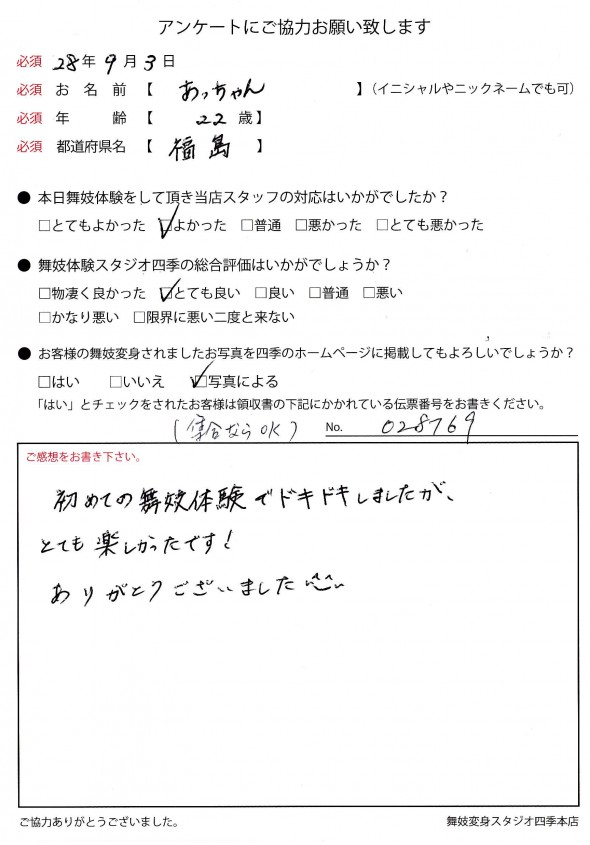 アンケートにご協力お願い致します
必須 28年 9月 3日
必須 お名前【 あっちゃん 】(イニシャルやニックネームでも可)
必須 年齢【 22歳】
必須 都道府県名【 福島 】
● 本日舞妓体験をして頂き当店スタッフの対応はいかがでしたか？
□とてもよかった ☑よかった □普通 □悪かった □とても悪かった
● 舞妓体験スタジオ四季の総合評価はいかがでしょうか？
□物凄く良かった ☑とても良い □良い □普通 □悪い
□かなり悪い □限界に悪い二度と来ない
● お客様の舞妓変身されましたお写真を四季のホームページに掲載してもよろしいでしょうか？
□はい □いいえ ☑写真による
「はい」とチェックをされたお客様は領収書の下記にかかれている伝票番号をお書きください。
(集合ならOK) No. 028769
ご感想をお書き下さい。
初めての舞妓体験でドキドキしましたが、
とても楽しかったです！
ありがとうございました
ご協力ありがとうございました。 舞妓変身スタジオ四季本店